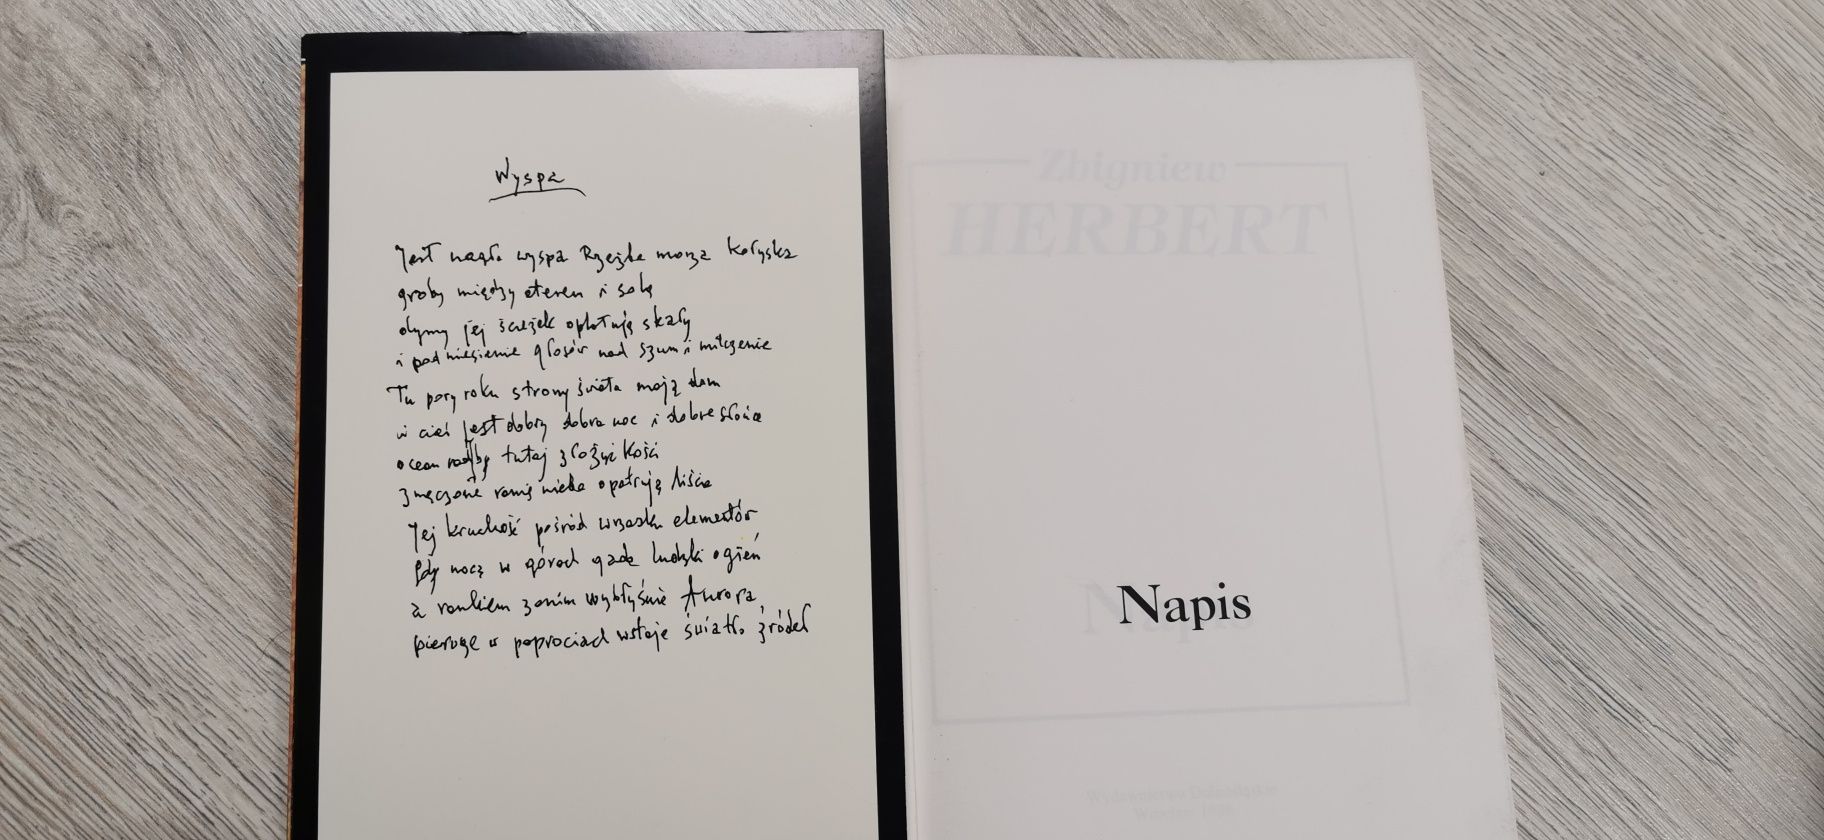 Wyspa
Jest nagła wyspa Rzeźba morza kołyska
groby między eterem i solą
dymy jej ścieżek oplatują skały
i podniesienie głosów nad szum i milczenie
Tu pory roku strony świata mają dom
i cień jest dobry dobra noc i dobre słońce
ocean rad by tutaj złożyć kości
zmęczone ramię nieba opatrują liście
Jej kruchość pośród wrzasku elementów
gdy nocą w górach gada ludzki ogień
a rankiem zanim wybłyśnie Aurora
pierwsze w paprociach wstaje światło źródeł
Zbigniew
HERBERT
Napis
Wydawnictwo Dolnośląskie
Wrocław